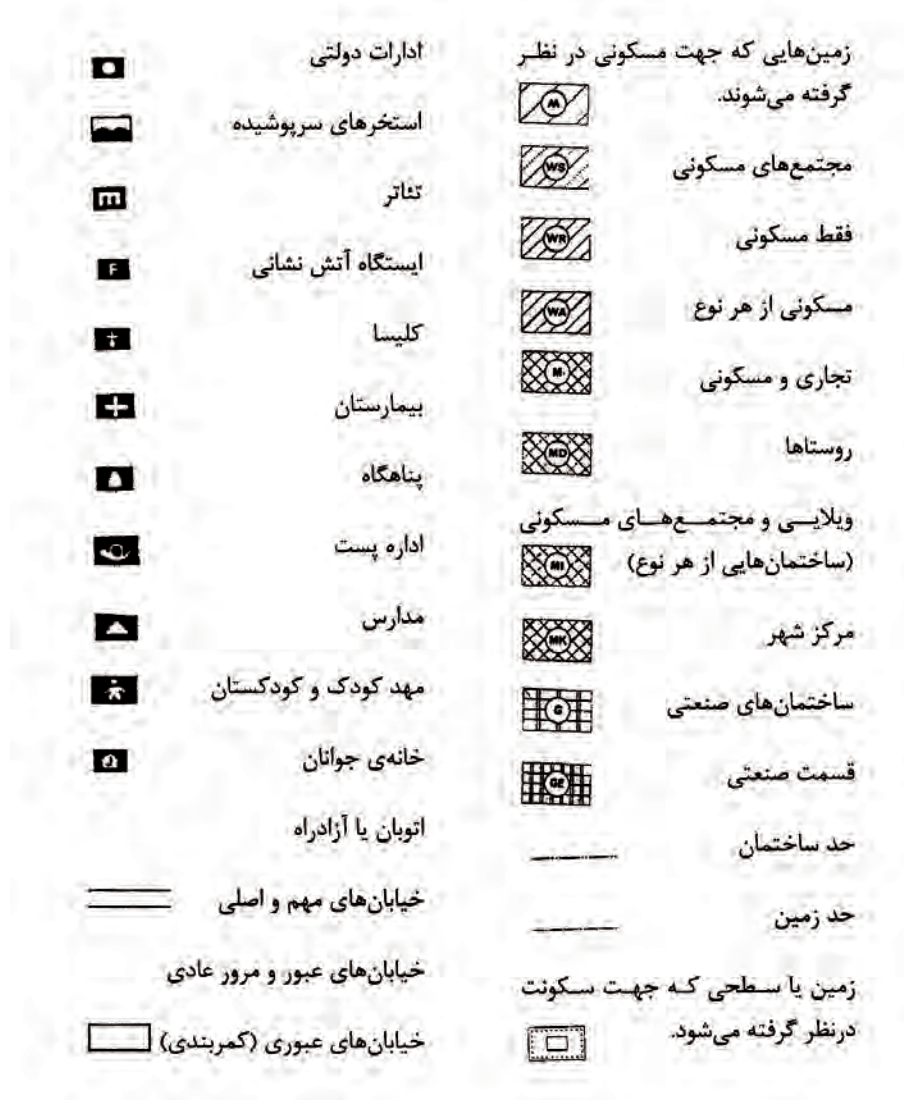 زمین‌هایی که جهت مسکونی در نظر
گرفته می‌شوند.
W
مجتمع‌های مسکونی
WS
فقط مسکونی
WR
مسکونی از هر نوع
WA
تجاری و مسکونی
M
روستاها
MD
ویلایی و مجتمع‌های مسکونی
(ساختمان‌هایی از هر نوع)
MI
مرکز شهر
MK
ساختمان‌های صنعتی
G
قسمت صنعتی
GE
حد ساختمان
حد زمین
زمین یا سطحی که جهت سکونت
درنظر گرفته می‌شود.
ادارات دولتی
استخرهای سرپوشیده
تئاتر
ایستگاه آتش نشانی
F
کلیسا
بیمارستان
پناهگاه
اداره پست
مدارس
مهد کودک و کودکستان
خانه‌ی جوانان
اتوبان یا آزادراه
خیابان‌های مهم و اصلی
خیابان‌های عبور و مرور عادی
خیابان‌های عبوری (کمربندی)